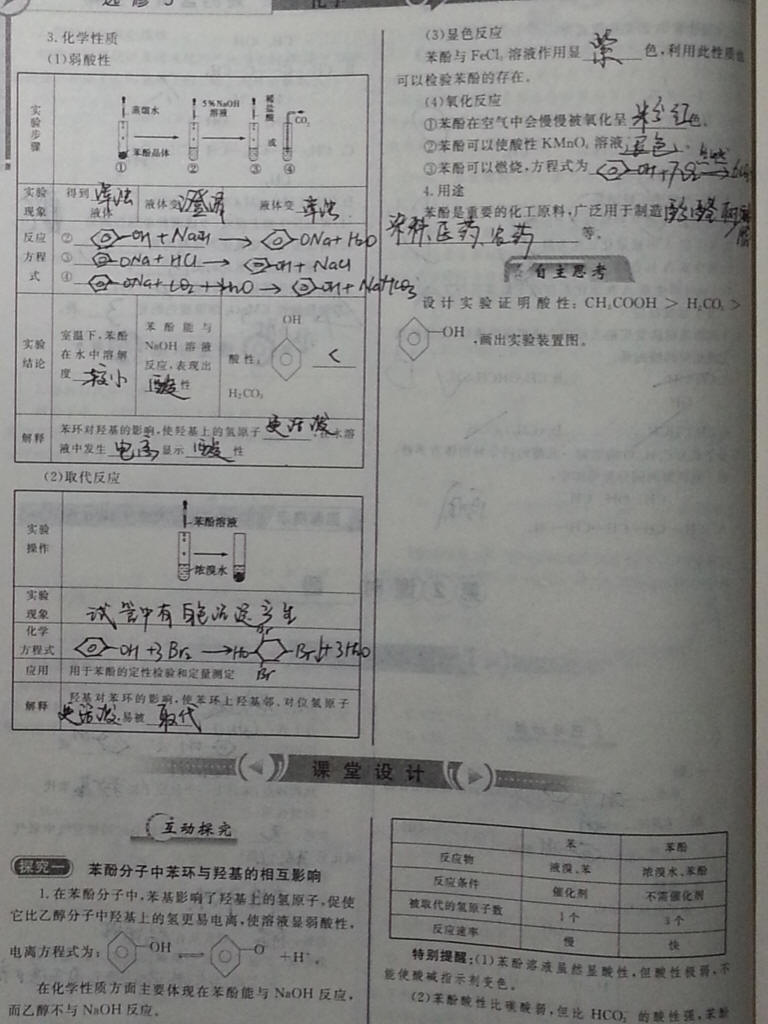 选修5
化学
3.化学性质
(1)弱酸性
实验步骤
蒸馏水
苯酚晶体
①
5%NaOH溶液
②
③
稀盐酸
或
CO₂
④
实验现象
得到 浑浊 液体
液体变 澄清
液体变 浑浊
反应方程式
② -OH + NaOH → -ONa + H₂O
③ -ONa + HCl → -OH + NaCl
④ -ONa + CO₂ + H₂O → -OH + NaHCO₃
实验结论
室温下,苯酚在水中溶解度 较小
苯酚能与NaOH溶液反应,表现出 酸 性
酸性: OH <
H₂CO₃
解释
苯环对羟基的影响,使羟基上的氢原子 更活泼 ,在水溶
液中发生 电离 显示 酸 性
(2)取代反应
实验操作
苯酚溶液
浓溴水
实验现象
试管中有白色沉淀产生
化学方程式
-OH + 3Br₂ → HO- Br Br↓ + 3H₂O
Br
应用
用于苯酚的定性检验和定量测定
解释
羟基对苯环的影响,使苯环上羟基邻、对位氢原子
更活泼,易被 取代
(3)显色反应
苯酚与FeCl₃溶液作用显 紫 色,利用此性质也
可以检验苯酚的存在。
(4)氧化反应
①苯酚在空气中会慢慢被氧化呈 粉红 色。
②苯酚可以使酸性KMnO₄溶液 褪色 。
③苯酚可以燃烧,方程式为 -OH + 7O₂ 点燃→
4.用途
苯酚是重要的化工原料,广泛用于制造 酚醛树脂
染料、医药、农药 等。
自主思考
设计实验证明酸性:CH₃COOH > H₂CO₃ >
-OH ,画出实验装置图。
课堂设计
互动探究
探究一 苯酚分子中苯环与羟基的相互影响
1.在苯酚分子中,苯基影响了羟基上的氢原子,促使
它比乙醇分子中羟基上的氢更易电离,使溶液显弱酸性,
电离方程式为: -OH ⇌ -O⁻ +H⁺。
在化学性质方面主要体现在苯酚能与NaOH反应,
而乙醇不与NaOH反应。
苯 苯酚
反应物 液溴、苯 浓溴水、苯酚
反应条件 催化剂 不需催化剂
被取代的氢原子数 1个 3个
反应速率 慢 快
特别提醒:(1)苯酚溶液虽然显酸性,但酸性极弱,不
能使酸碱指示剂变色。
(2)苯酚酸性比碳酸弱,但比HCO₃⁻的酸性强,苯酚